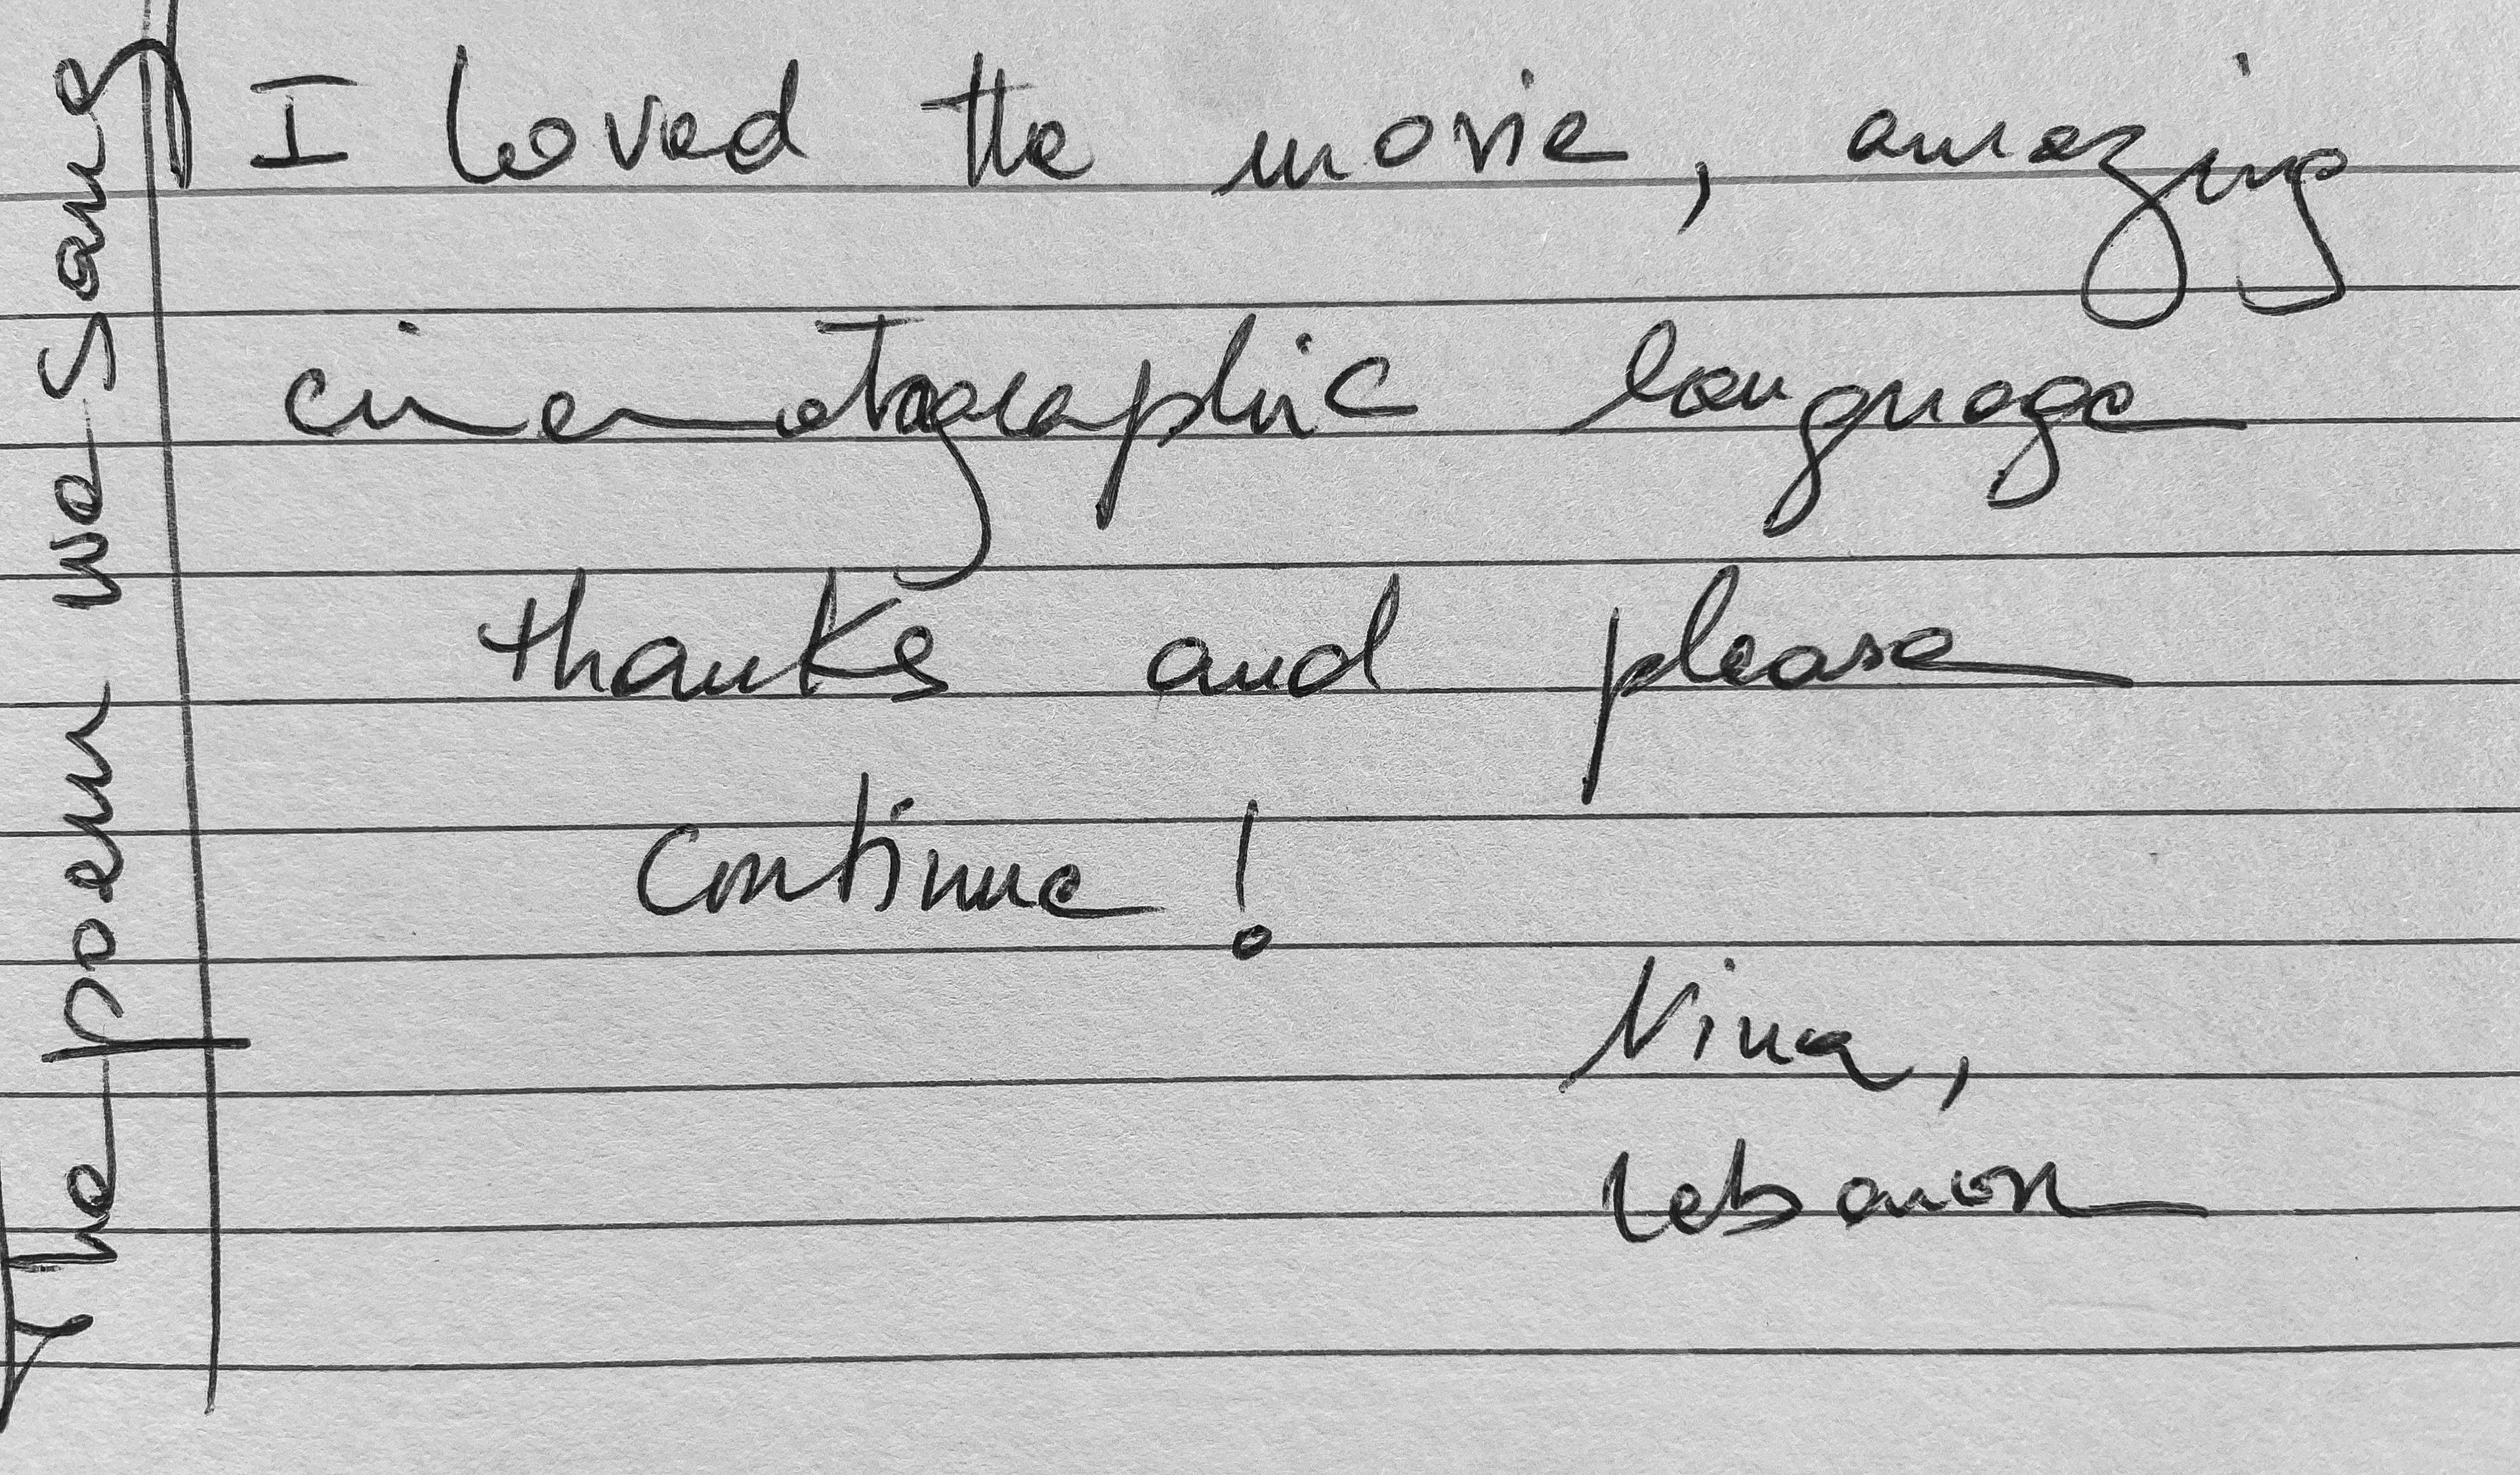 The poem we sang
I loved the movie, amazing
cinematographic language
thanks and please
continue!
Nina,
Lebanon